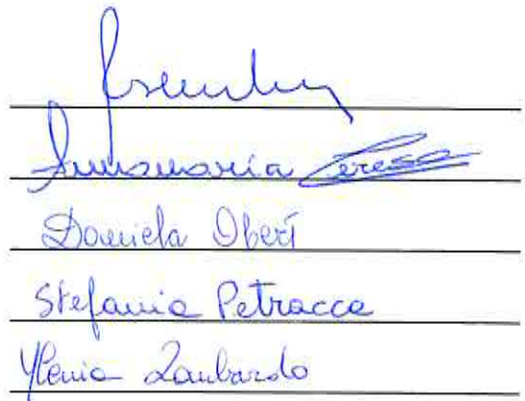 Annamaria Ceresa
Daniela Oberti
Stefania Petracca
Ylenia Lombardo